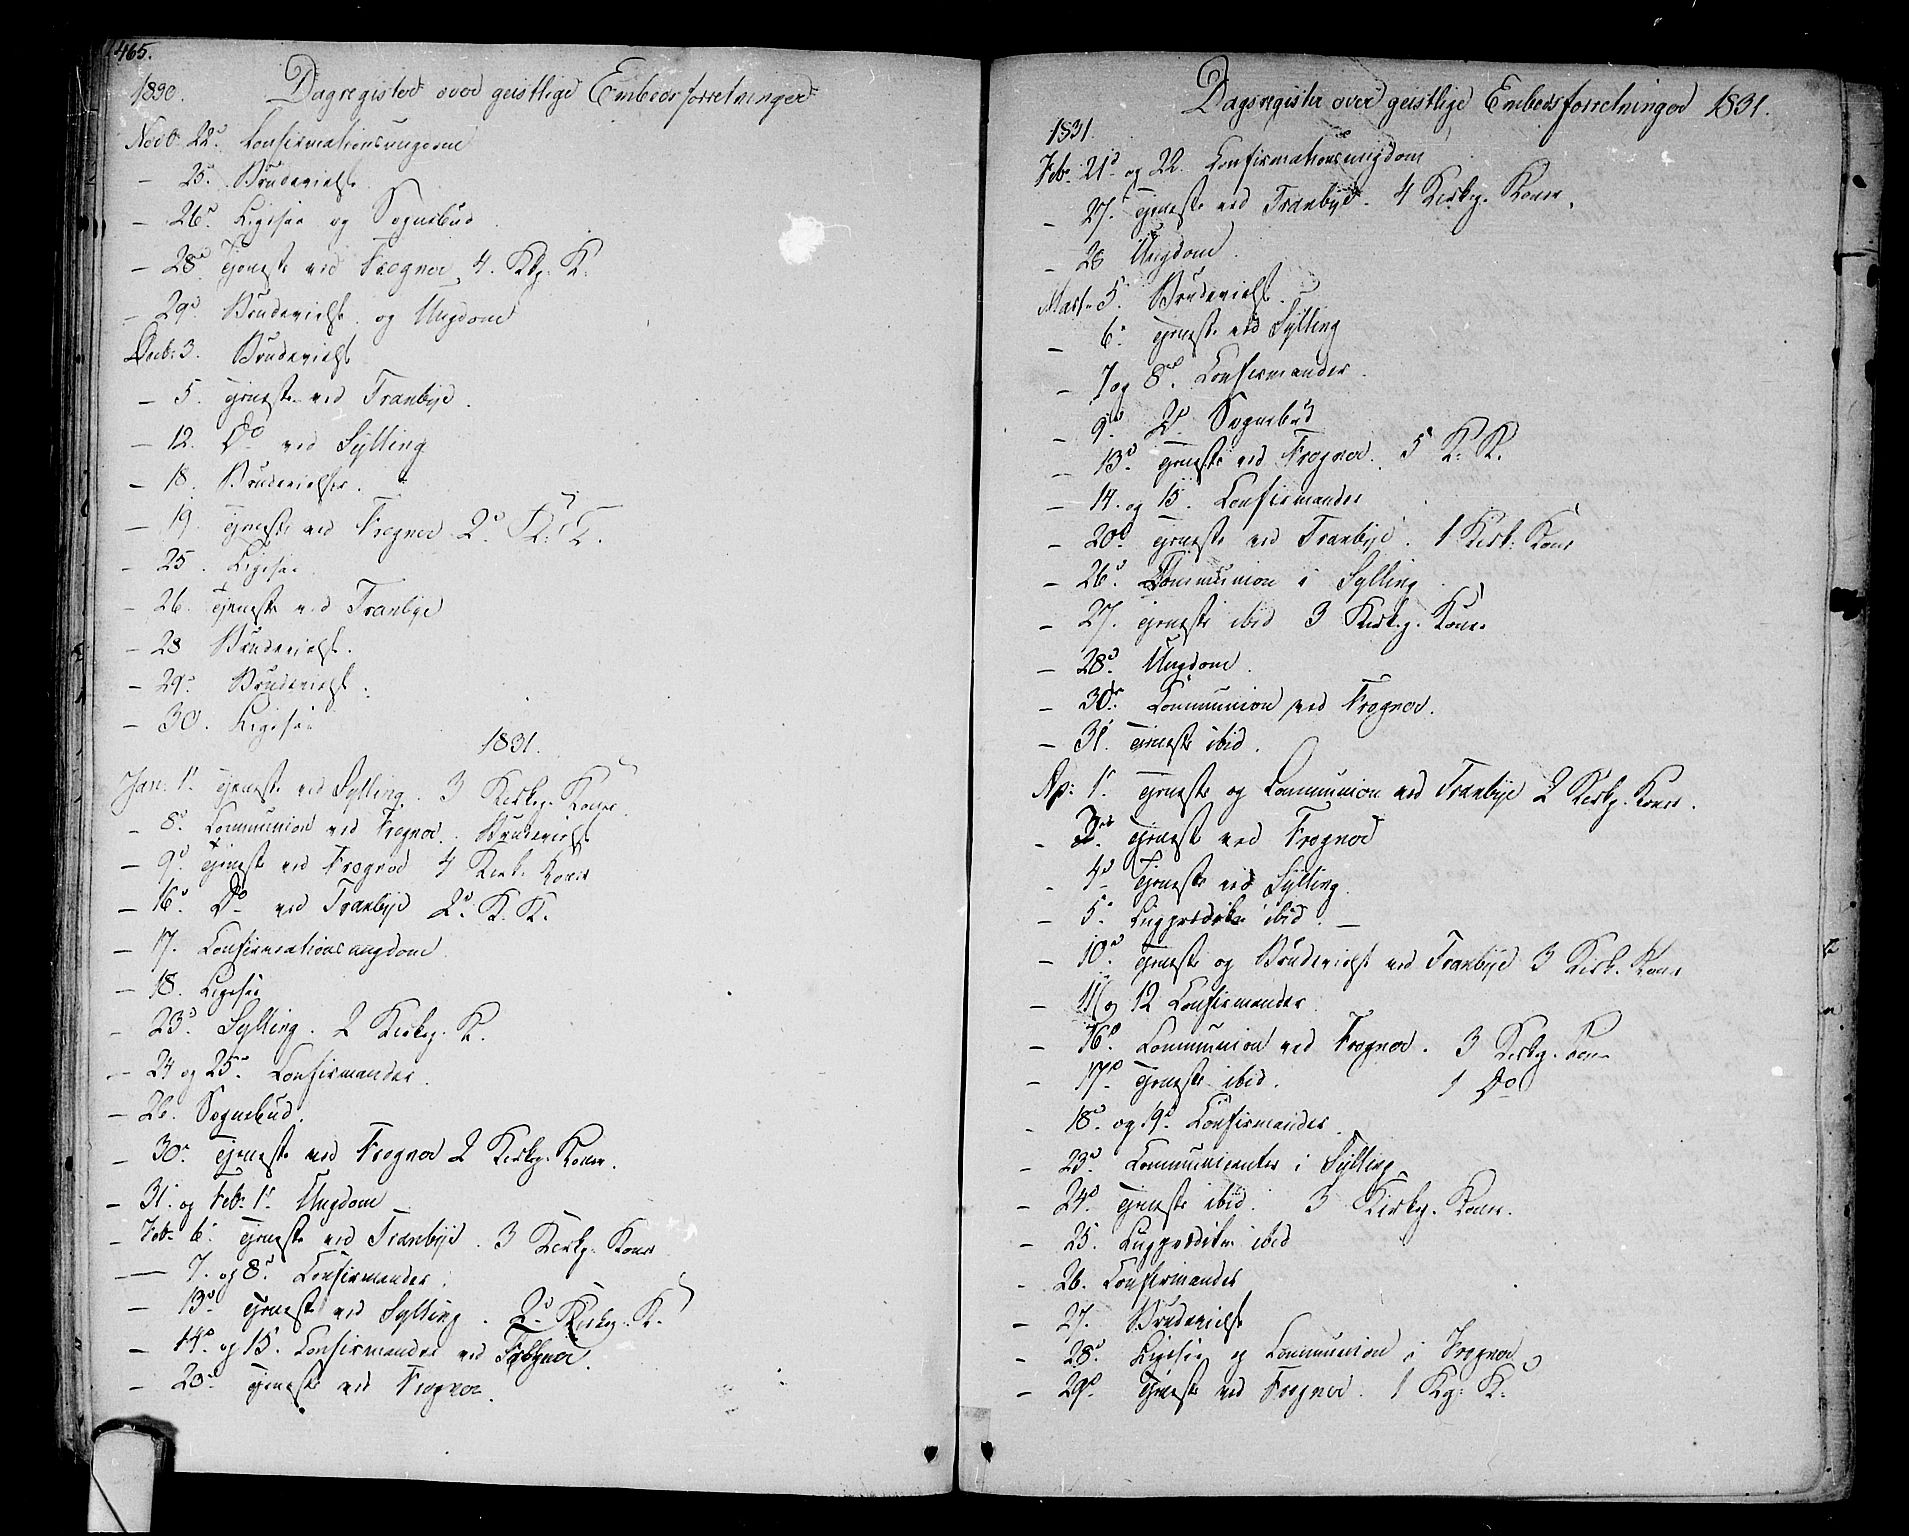 465.
1830. Dagregister over geistlige Embedsforretninger
Novb. 22. Confirmationsungdom
— 25. Brudevielse.
— 26. Ligefær og Sognebud
— 28. Tjeneste ved Frogner 4. Kg. K.
— 29. Brudevielse og Ungdom
Decb: 3. Brudevielse
— 5. Tjeneste ved Tranbye.
— 12. Do ved Sylling
— 18. Brudevielser.
— 19. Tjeneste ved Frogner 2. K: K.
— 25. Ligefær
— 26. Tjeneste ved Tranbye
— 28 Brudevielse.
— 29. Brudevielse.
— 30. Ligefær
1831.
Jan. 1. Tjeneste ved Sylling. 3 Kirkeg. Koner.
— 8. Communion ved Frogner. Brudevielse
— 9. Tjeneste ved Frogner 4 Kirk. Koner
— 16. Do ved Tranbye 2. K. K.
— 17. Confirmationsungdom
— 18. Ligefær
— 23. Sylling. 2 Kirkeg. K.
— 24 og 25. Confirmander.
— 26. Sognebud.
— 30. Tjeneste ved Frogner 2 Kirkeg. Koner.
— 31. og Feb. 1. Ungdom
— Feb. 6. Tjeneste ved Tranbye. 3 Kirkg. Koner
— 7. og 8. Confirmander.
— 13. Tjeneste ved Sylling. 2. Kirkeg. K.
— 14. og 15. Confirmander ved Frogner.
— 23. Tjeneste ved Frogner.
Dagsregister over geistlige Embedsforretninger 1831.
1831.
Feb. 21. og 22. Confirmationsungdom
— 27. Tjeneste ved Tranbye. 4 Kirkg. Koner.
— 28 Ungdom.
Marts 5. Brudevielse.
— 6. Tjeneste ved Sylling
— 7 og 8. Confirmander.
— 9. 2 Sognebud
— 13. Tjeneste ved Frogner. 5 K. K.
— 14. og 15. Confirmander
— 20. Tjeneste ved Tranbye. 1 Kirk: Kone
— 26. Communion i Sylling.
— 27. Tjeneste ibid 3 Kirkg. Koner
— 28. Ungdom.
— 30. Communion ved Frogner.
— 31. Tjeneste ibid.
Ap: 1. Tjeneste og Communion ved Tranbye 2 Kirkg. Koner.
— 3. Tjeneste ved Frogner
— 4. Tjeneste ved Sylling.
— 5. ibid. —
— 10. Tjeneste og Brudevielse ved Tranbye 3 Kirk. Koner
— 11 og 12 Confirmander
— 16. Communion ved Frogner. 3 Kirkg. Kon.
— 17. Tjeneste ibid. 1 Do
— 18. og 19. Confirmander.
— 23. Communicanter i Sylling
— 24. Tjeneste ibid. 3 Kirkg. Koner.
— 25. ibid
— 26. Confirmander
— 27. Brudevielse
— 28. Ligefær og Communion i Frogner
— 29. Tjeneste ved Frogner. 1 Kg: K.